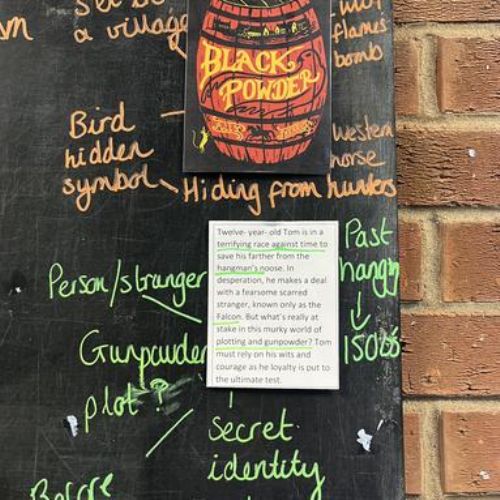 a village
flames
bomb
BLACK
POWDER
Bird
hidden
symbol
Western
horse
Hiding from hunters
Twelve- year- old Tom is in a
terrifying race against time to
save his farther from the
hangman's noose. In
desperation, he makes a deal
with a fearsome scarred
stranger, known only as the
Falcon. But what's really at
stake in this murky world of
plotting and gunpowder? Tom
must rely on his wits and
courage as he loyalty is put to
the ultimate test.
Past
hangin
1500s
Person/stranger
Gunpowder
plot ?
Secret
identity
Before